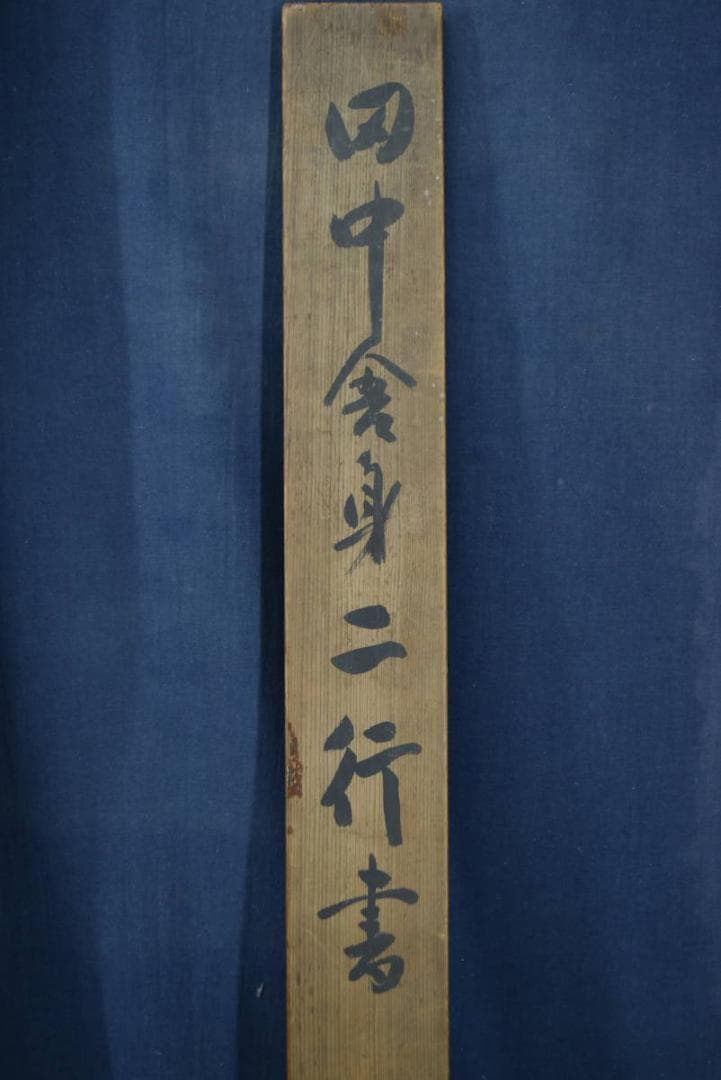 田中舎身二行書